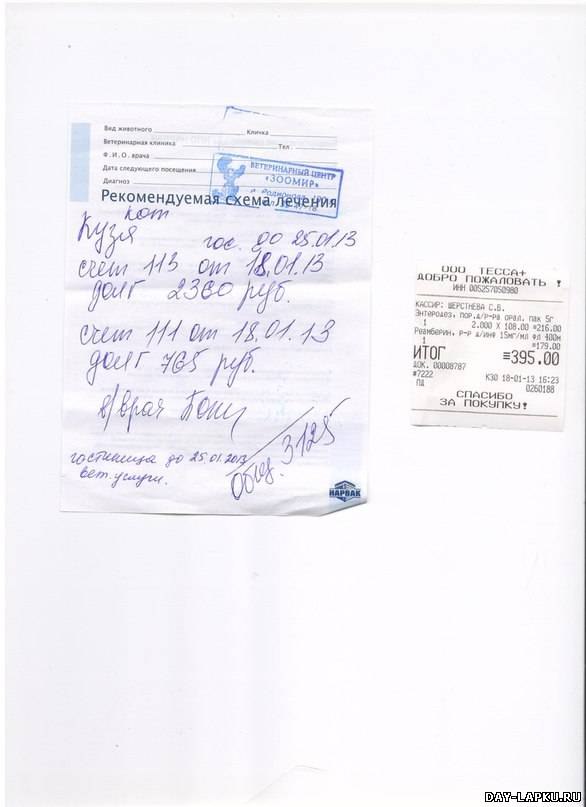 Вид животного Кличка
Ветеринарная клиника Тел.
Ф.И.О. врача
Дата следующего посещения
Диагноз
ВЕТЕРИНАРНЫЙ ЦЕНТР
«ЗООМИР»
Рекомендуемая схема лечения
кот
Кузя гос. до 25.01.13
счет 113 от 18.01.13
долг 2360 руб.
счет 111 от 18.01.13
долг 765 руб.
в/врач
гостиница до 25.01.2013
вет. услуги.
Общ. 3125
НАРВАК
ООО ТЕССА+
ДОБРО ПОЖАЛОВАТЬ !
ИНН 005257050980
КАССИР: ШЕРСТНЕВА С.В.
Энтеродез, пор.д/р-ра орал. пак 5г
1 2.000 X 108.00 =216.00
Реамберин, р-р д/инф 15мг/мл фл 400м
1 =179.00
ИТОГ =395.00
ДОК. 00008787
#7222 К30 18-01-13 16:23
ПД 0260188
СПАСИБО
ЗА ПОКУПКУ!
DAY-LAPKU.RU